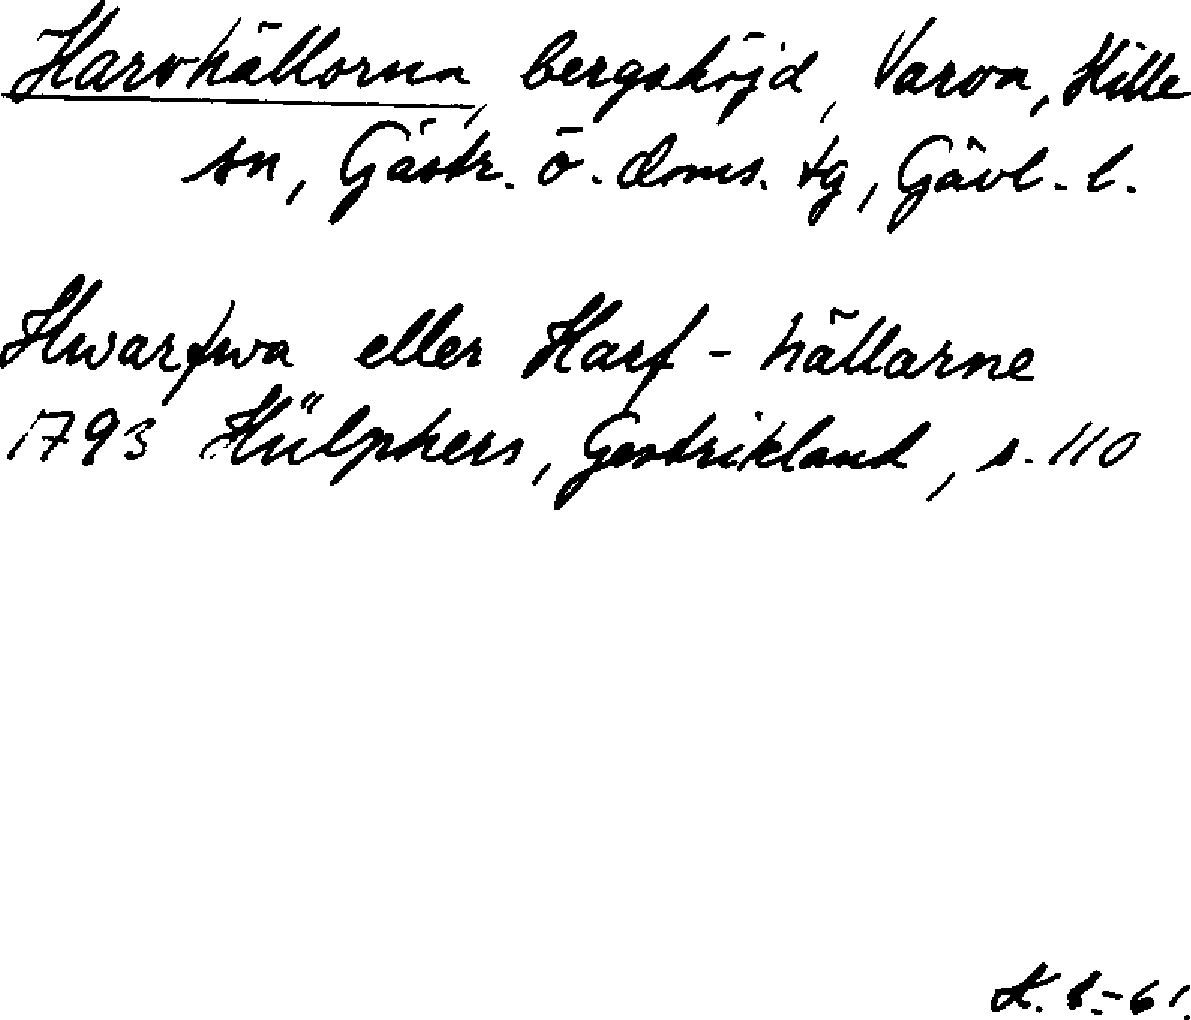 Harvhällorna, bergshöjd, Varva, Hille
sn, Gästr. ö. doms. tg, Gävl. l.
Hwarfwa eller Harf-hällarne
1793 Hülphers, Gestrikland, s. 110